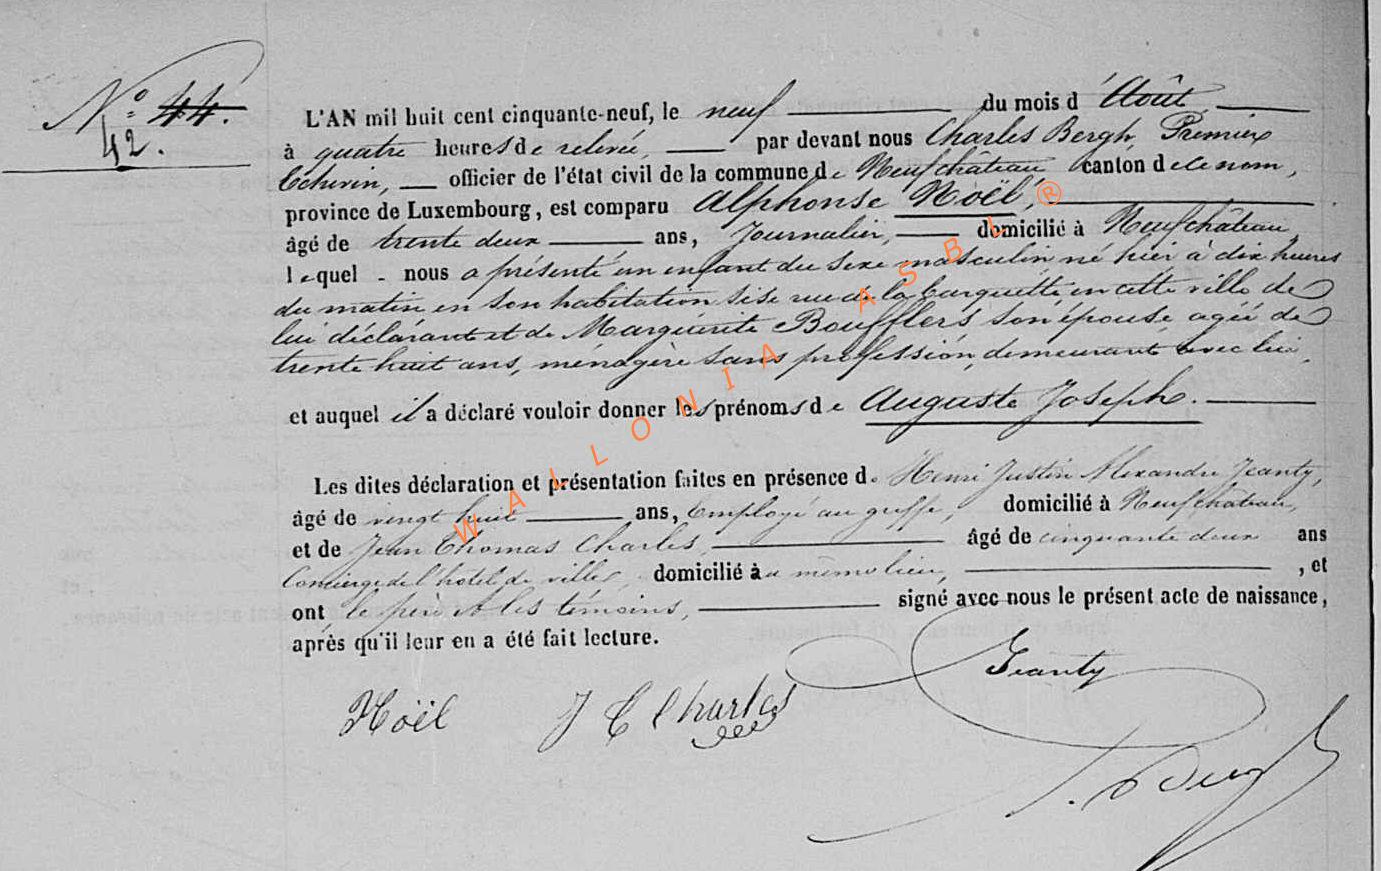 N° 44.
42.
L'AN mil huit cent cinquante-neuf, le neuf du mois d'Août,
à quatre heures de relevée, par devant nous Charles Bergh, Premier
Echevin, officier de l'état civil de la commune de Neufchâteau canton de ce nom,
province de Luxembourg, est comparu Alphonse Noël,
âgé de trente deux ans, Journalier, domicilié à Neufchâteau,
lequel nous a présenté un enfant du sexe masculin né hier à dix heures
du matin en son habitation sise rue de la en cette ville de
lui déclarant et de Marguerite Boufflers son épouse agée de
trente huit ans, ménagère sans profession, demeurant avec lui,
et auquel il a déclaré vouloir donner les prénoms de Auguste Joseph.
Les dites déclaration et présentation faites en présence de Henri Justin Alexandre Jeanty,
âgé de vingt huit ans, Employé au greffe, domicilié à Neufchateau,
et de Jean Thomas Charles, âgé de cinquante deux ans
Concierge de l'hôtel de ville, domicilié au même lieu, , et
ont le père et les témoins, signé avec nous le présent acte de naissance,
après qu'il leur en a été fait lecture.
Jeanty
Noël J T Charles
Bergh
WALLONIA ASBL ®